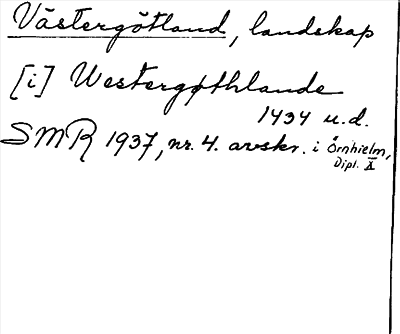 Västergötland, landskap
[i] Westergøthlande
1434 u.d.
SMR 1937, nr. 4. avskr. i Örnhielm,
Dipl. X